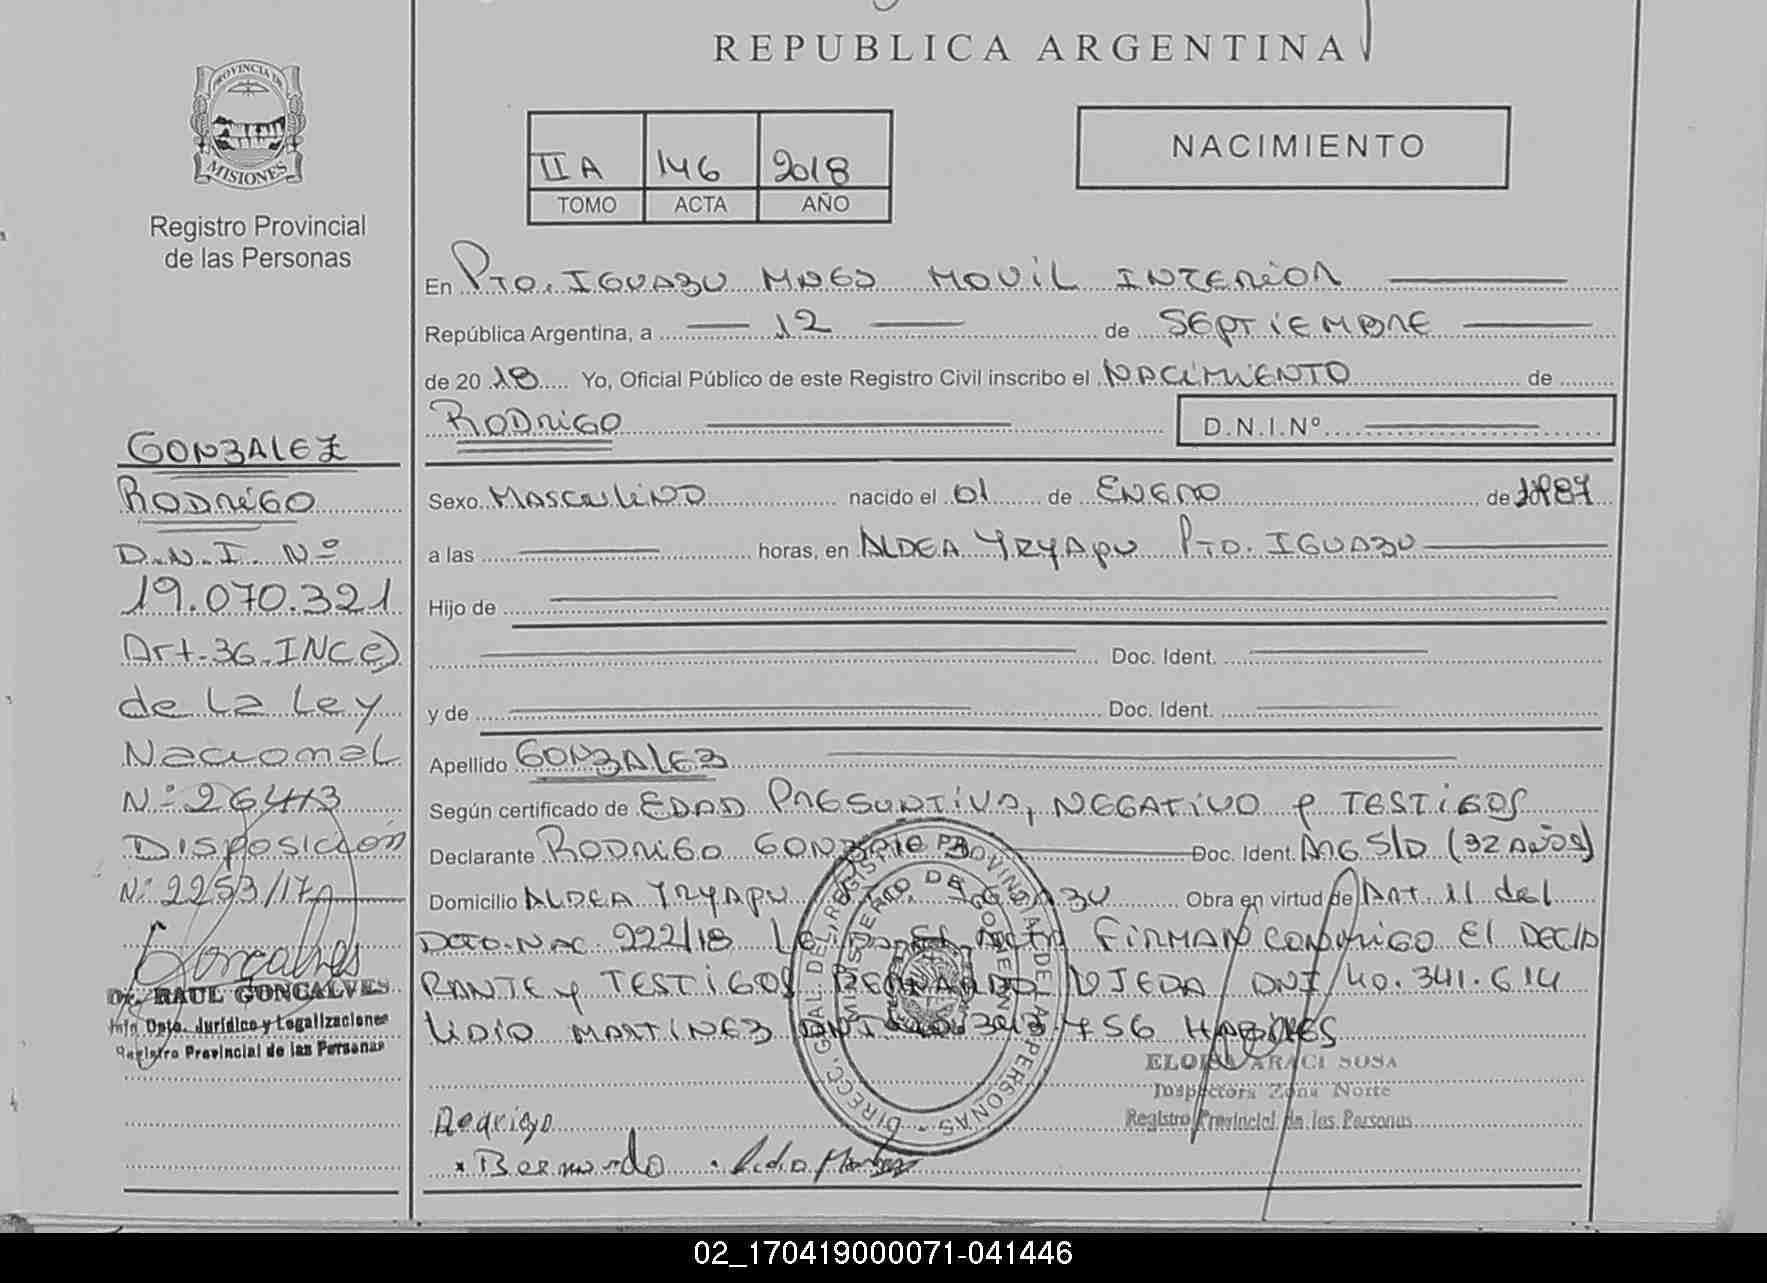 REPUBLICA ARGENTINA
PROVINCIA DE
MISIONES
Registro Provincial
de las Personas
II A 146 2018
TOMO ACTA AÑO
NACIMIENTO
GONZALEZ
RODRIGO
D.N.I. Nº
19.070.321
Art. 36 INC e)
de La Ley
Nacional
Nº 26413
DISPOSICIÓN
Nº 2253/17
Gonçalves
Dr. RAUL GONCALVES
Dpto. Jurídico y Legalizaciones
Registro Provincial de las Personas
En PTO. IGUAZU MNES MOVIL INTERIOR
República Argentina, a 12 de SEPTIEMBRE
de 2018 Yo, Oficial Público de este Registro Civil inscribo el NACIMIENTO de
RODRIGO D.N.I.Nº
Sexo MASCULINO nacido el 01 de ENERO de 1987
a las horas, en ALDEA YRYAPU PTO. IGUAZU
Hijo de
Doc. Ident.
y de Doc. Ident.
Apellido GONZALEZ
Según certificado de EDAD PRESUNTIVA, NEGATIVO y TESTIGOS
Declarante RODRIGO GONZALEZ Doc. Ident. ARG S/D (32 AÑOS)
Domicilio ALDEA YRYAPU IGUAZU Obra en virtud de ART. 11 del
DCTO. NAC. 222/18 Leida el ACTA FIRMAN CONMIGO El DECLA
RANTE y TESTIGOS BERNARDO OJEDA DNI 40.341.614
LIDIO MARTINEZ DNI 456 HABILES
DIRECC. GRAL. DEL REGISTRO PROVINCIAL DE LAS PERSONAS
ELOISA ARACI SOSA
Inspectora Zona Norte
Registro Provincial de las Personas
Rodrigo
Bernardo Lidio Martinez
02_170419000071-041446